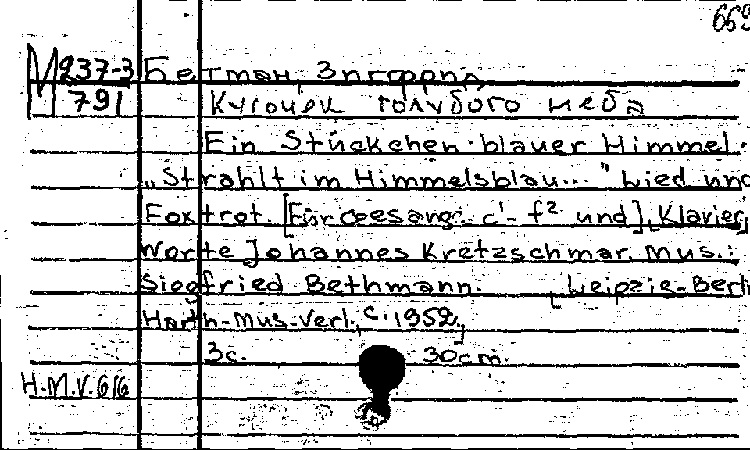 669
М 237-3 Бетман, Зигфрид
791 Кусочек голубого неба
Ein Stückchen blauer Himmel.
„Strahlt im Himmelsblau..." Lied und
Foxtrot. [Für Gesang c¹- f² und], Klavier,
Worte Johannes Kretzschmar. Mus.:
Siegfried Bethmann. [Leipzig-Berl
Harth-Mus.-Verl., c. 1952,
3c. 30cm.
H.M.V. 616